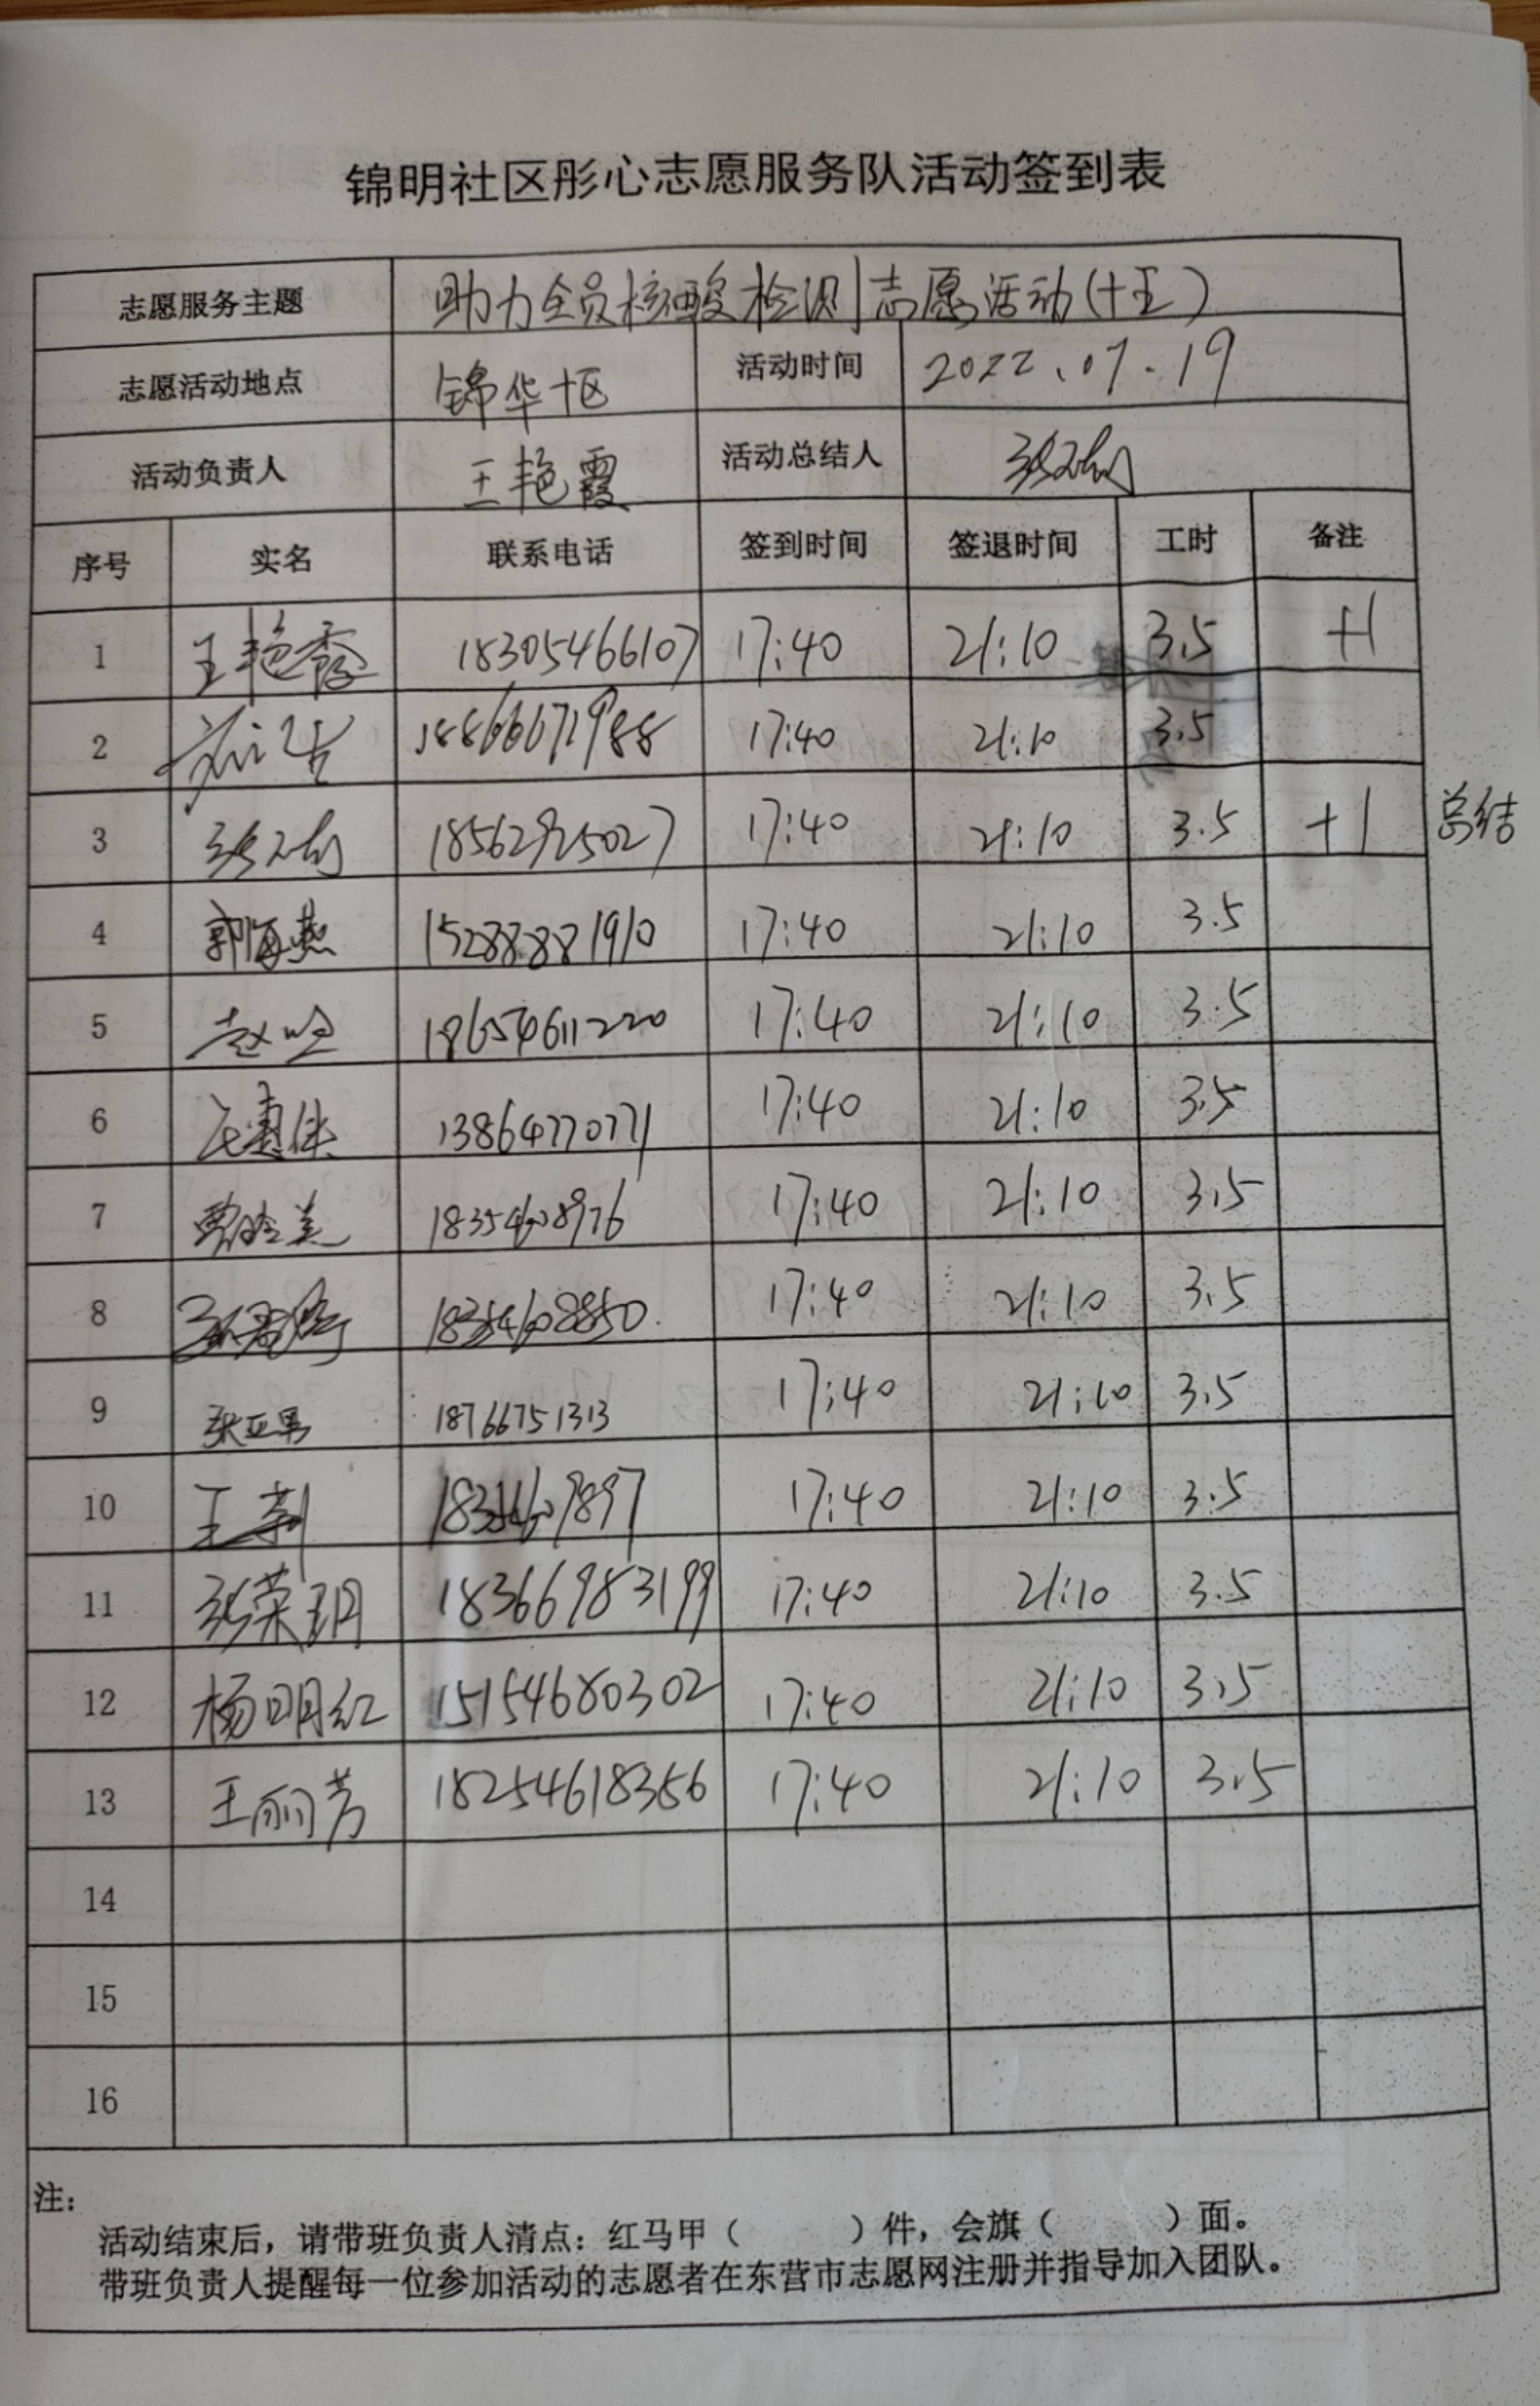 锦明社区彤心志愿服务队活动签到表
志愿服务主题 助力全员核酸检测志愿活动(十五)
志愿活动地点 锦华十区 活动时间 2022.07.19
活动负责人 王艳霞 活动总结人
序号 实名 联系电话 签到时间 签退时间 工时 备注
1 王艳霞 18305466107 17:40 21:10 3.5 +1
2 18866671988 17:40 21:10 3.5
3 18562925027 17:40 21:10 3.5 +1 总结
4 郭海燕 15288881910 17:40 21:10 3.5
5 18654611220 17:40 21:10 3.5
6 13864770771 17:40 21:10 3.5
7 18354608976 17:40 21:10 3.5
8 18354608850 17:40 21:10 3.5
9 张亚男 18766751313 17:40 21:10 3.5
10 王莉 17:40 21:10 3.5
11 张荣玥 18366983199 17:40 21:10 3.5
12 杨明红 15154680302 17:40 21:10 3.5
13 王丽芳 18254618356 17:40 21:10 3.5
14
15
16
注:
活动结束后，请带班负责人清点：红马甲（ ）件，会旗（ ）面。
带班负责人提醒每一位参加活动的志愿者在东营市志愿网注册并指导加入团队。